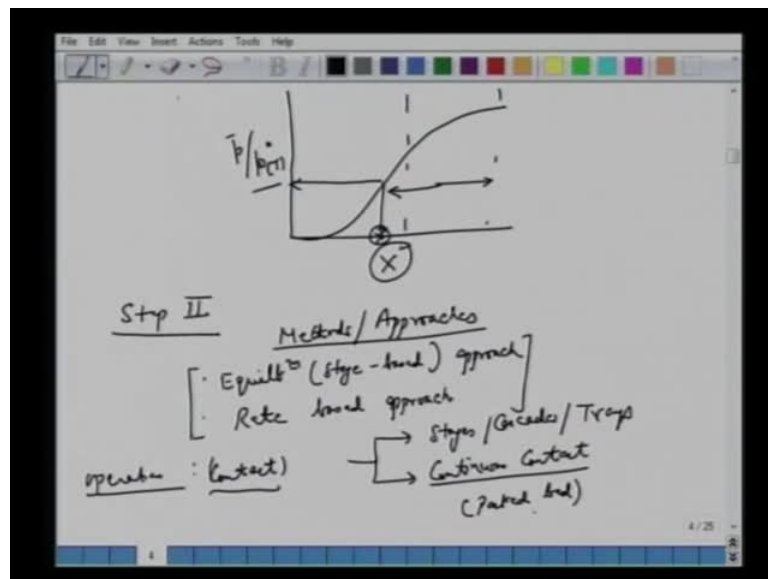 File Edit View Insert Actions Tools Help
B I
X
Step II
Methods/Approaches
Equilbm (Stage-based) approach
Rate based approach
operation : (Contact)
Stages/Cascades/Trays
Continuous Contact
(Packed bed)
4 / 25
4